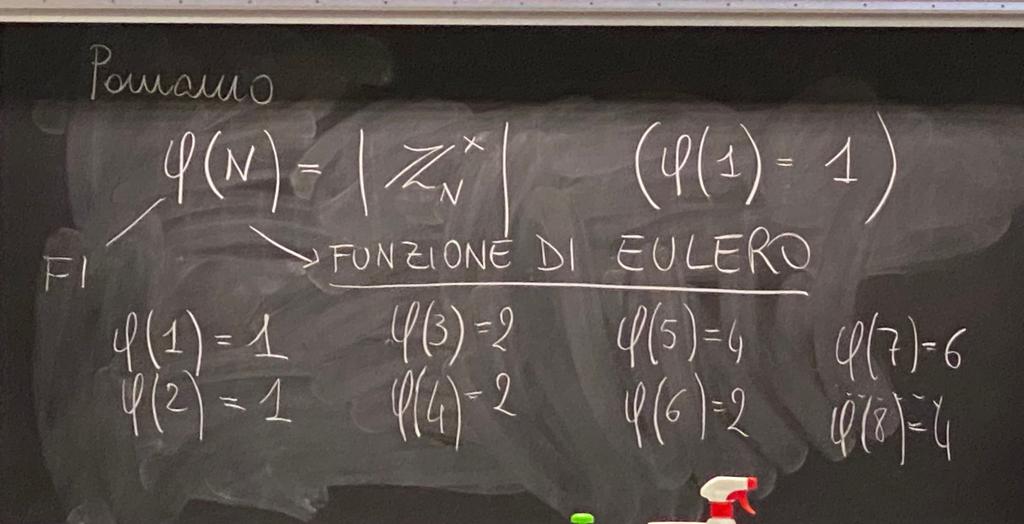 Poniamo
φ(N) = |ℤ_N^×| (φ(1) = 1)
FI → FUNZIONE DI EULERO
φ(1) = 1 φ(3) = 2 φ(5) = 4 φ(7) = 6
φ(2) = 1 φ(4) = 2 φ(6) = 2 φ(8) = 4